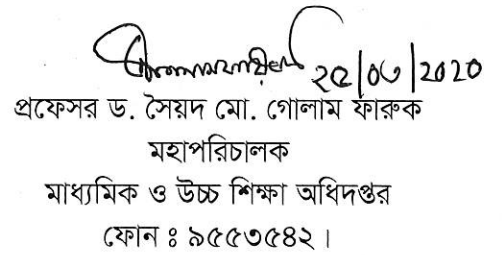 ২৫/০৩/2020
প্রফেসর ড. সৈয়দ মো. গোলাম ফারুক
মহাপরিচালক
মাধ্যমিক ও উচ্চ শিক্ষা অধিদপ্তর
ফোন ঃ ৯৫৫৩৫৪২।